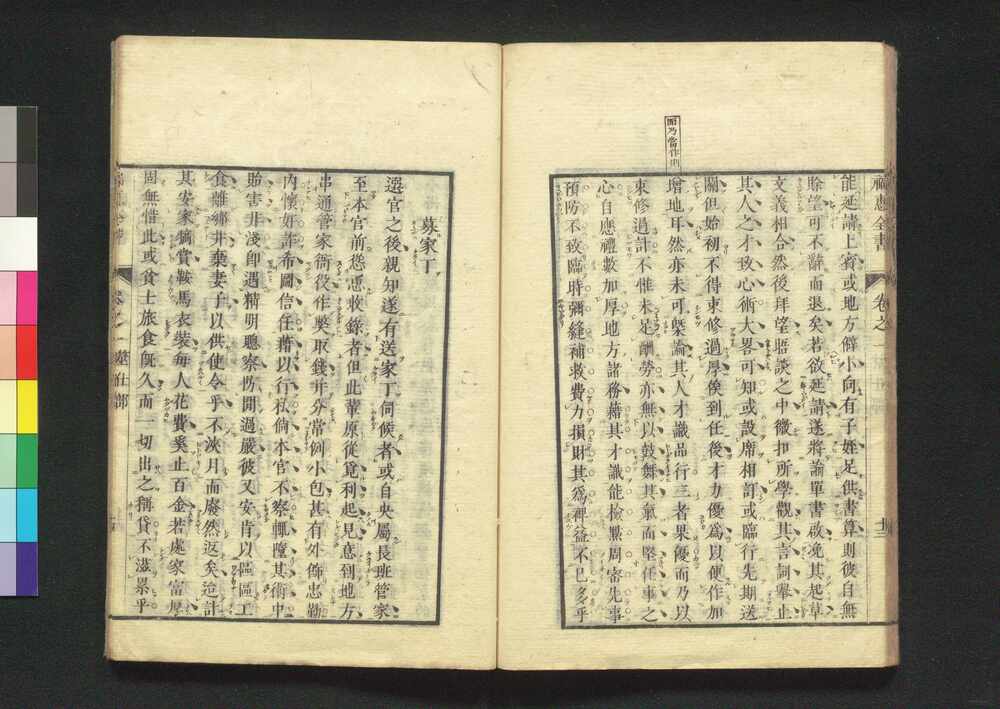 福惠全書 卷之一 筮仕部 十三
能延請上賓或地方僻小向有子姪足供書算則彼自無
除望可不辭而退矣若欲延請遂將諭單書啟凂其起草
文義相合然後拜望晤談之中微抑所學觀其言詞舉止
其人之才致心術大畧可知或設席相訂或臨行先期送
關但始初不得束修過厚俟到任後才力優爲以便作加
增地耳然亦未可槩論其人才識品行三者果優而乃以
束修過計不惟未足酬勞亦無以鼓舞其氣而堅任事之
心自應禮數加厚地方諸務藉其才識能檢點周密先事
預防不致臨時彌縫補救費力損財其爲裨益不已多乎
乃當作則
募家丁
選官之後親知遂有送家丁伺候者或自央屬長班管家
至本官前慫慂收錄者但此輩原從覔利起見意到地方
串通管家衙役作獘取錢并分常例小包甚有外飾忠勤
內懷奸詐希圖信任藉以行私倘本官不察輒墮其術中
貽害非淺即遇精明聰察防閑過嚴彼又安肯以區區工
食離鄉井棄妻子以供使令乎不浹月而廢然返矣迨計
其安家犒賞鞍馬衣裝每人花費奚止百金若處家富厚
固無惜此或貧士旅食旣久而一切出之稱貸不滋累乎
卷之一 筮仕部